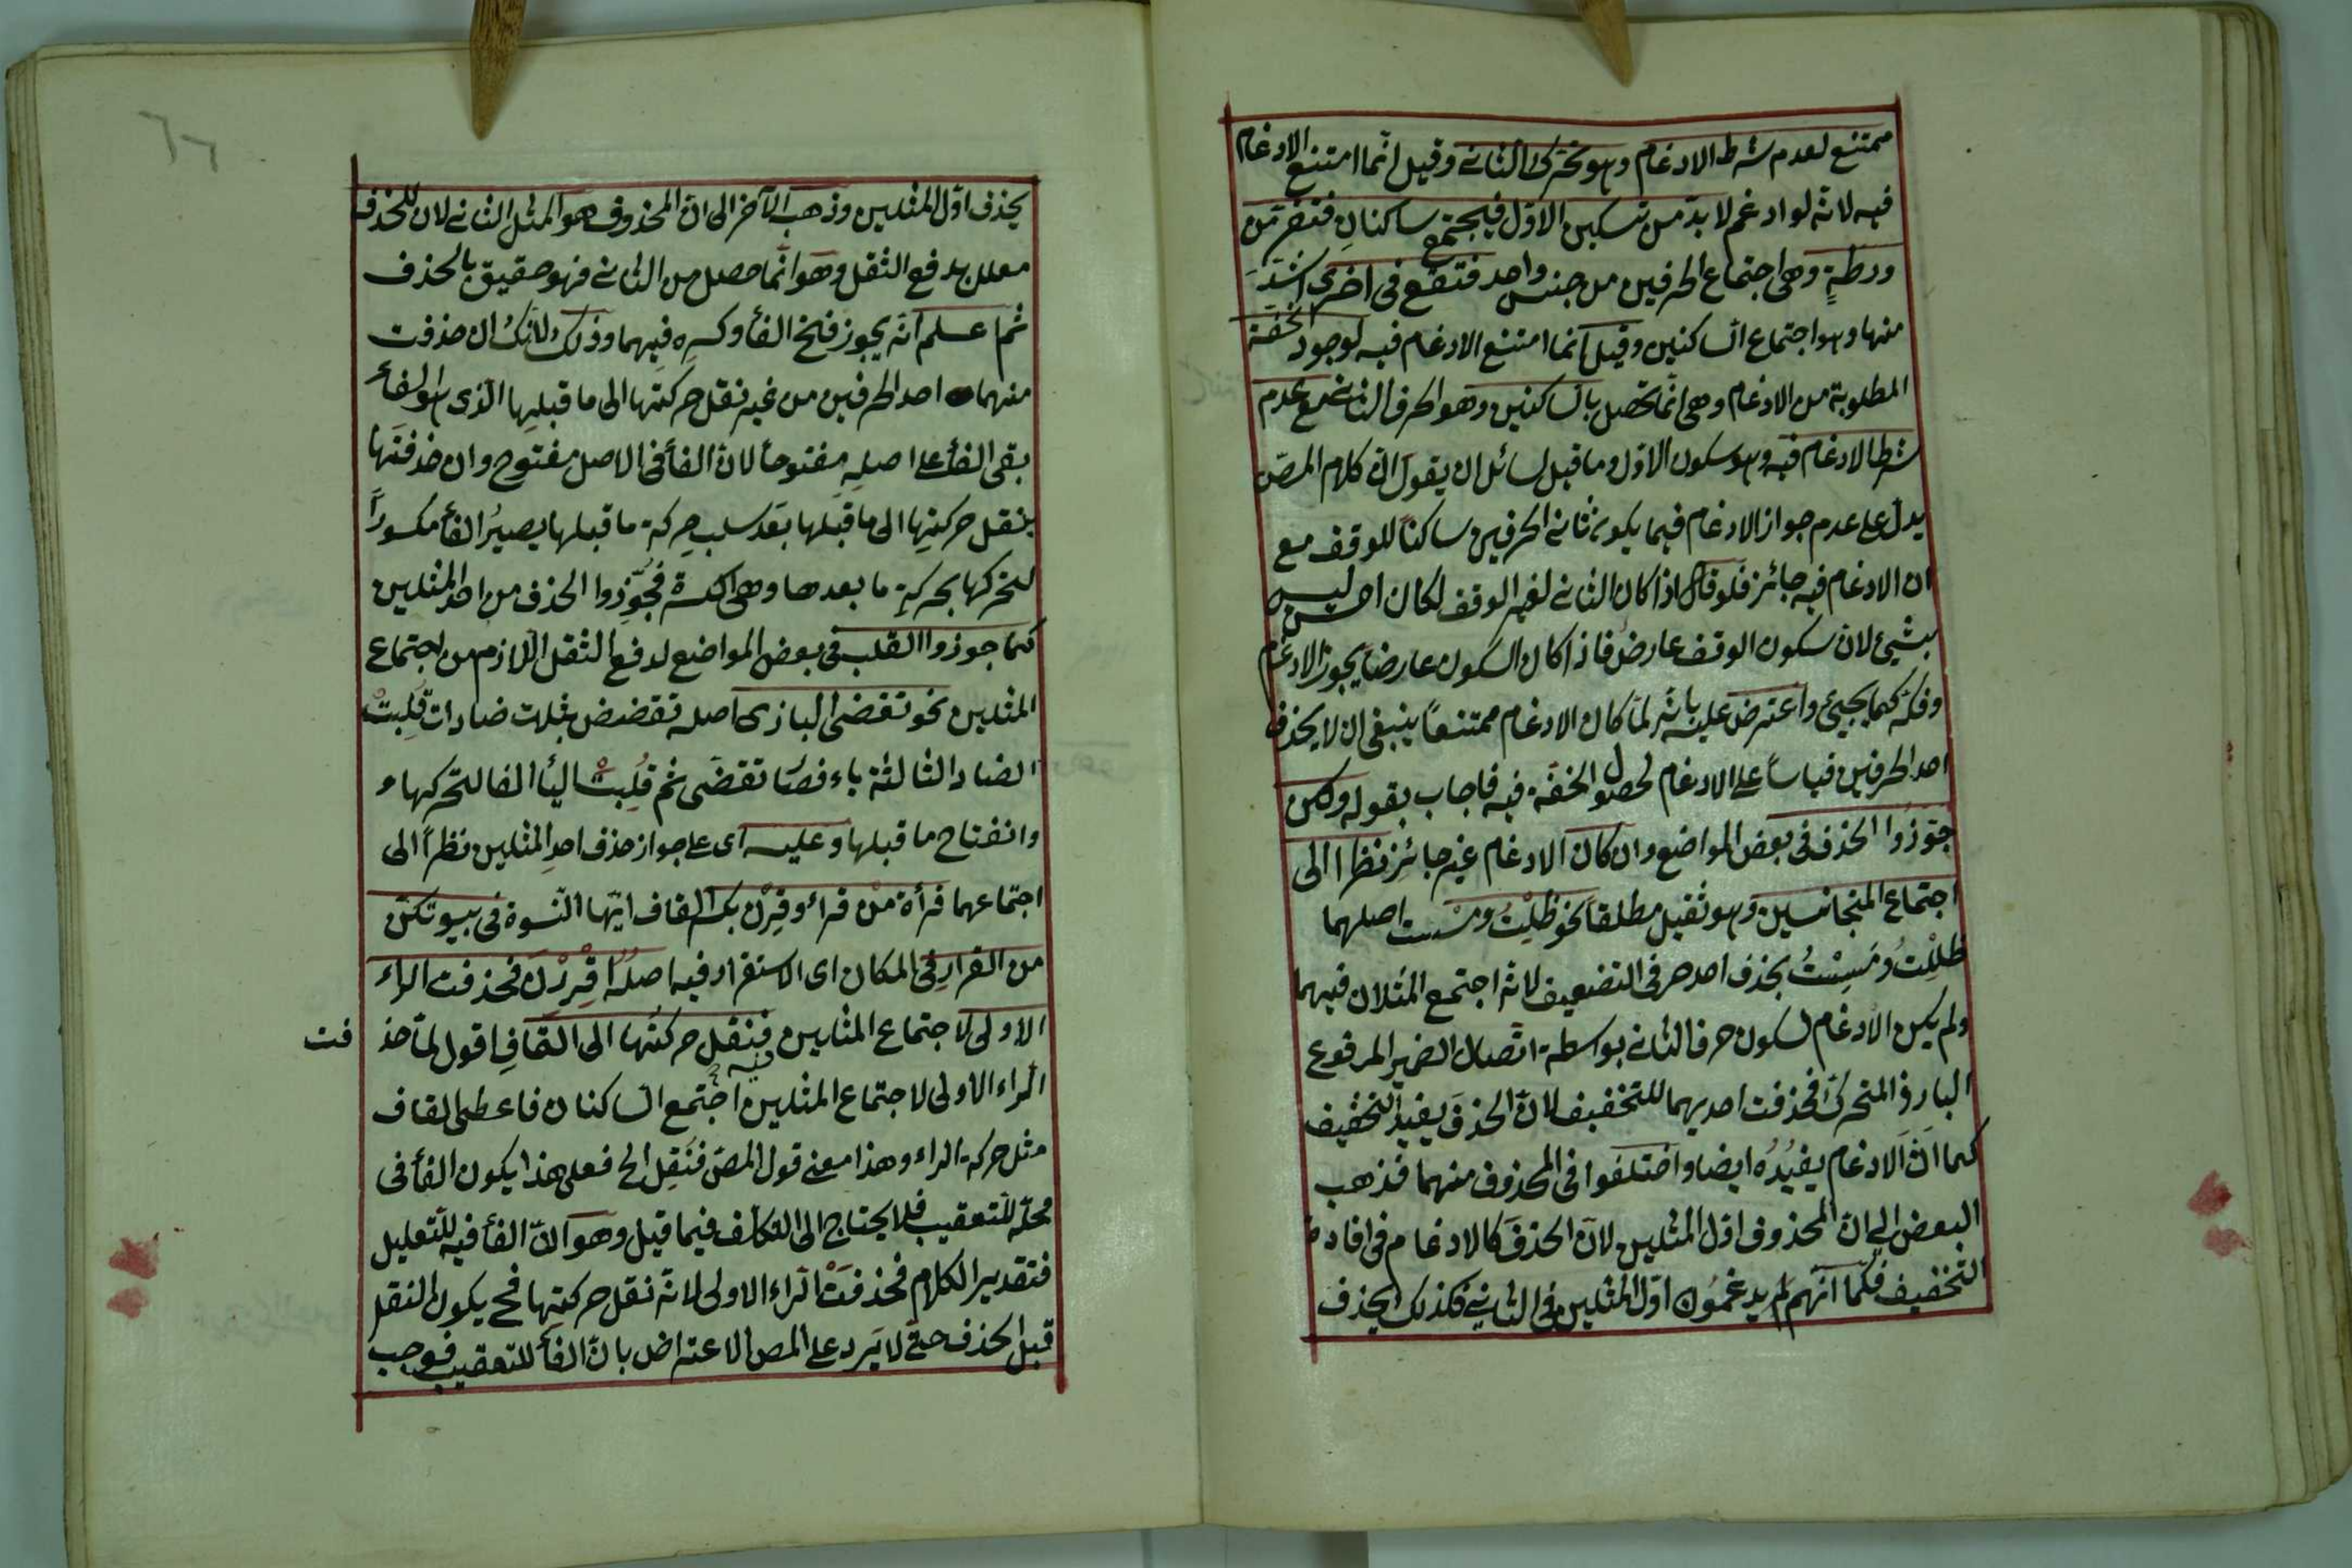 ممتنع لعدم شرط الادغام وهو تحرك الثانى وقيل انّما امتنع الادغام
فيه لانّه لو ادغم لا بدّ من تسكين الاوّل فيجتمع ساكنانِ فتفرّ من
ورطةٍ وهى اجتماع الحرفين من جنس واحد فتقع فى اخرى اشدّ
منها وهو اجتماع الساكنين وقيل انما امتنع الادغام فيه لوجود الخفّة
المطلوبة من الادغام وهى انّما تحصل بالساكنين وهو الحرف الثانى مع عدم
شرط الادغام فيه وهو سكون الاوّل وما قبل لسائل ان يقول انّ كلام المصّ
يدلّ على عدم جواز الادغام فيما يكون ثانى الحرفين ساكناً للوقف مع
ان الادغام فيه جائز فلو قال اذا كان الثانى لغير الوقف لكان احسن ليس
بشيئ لانّ سكون الوقف عارض فاذا كان السكون عارضاً يجوز الادغام
وفكّه كما يجيئ واعترض عليه بانّه لمّا كان الادغام ممتنعاً ينبغى ان لا يحذف
احد الحرفين قياساً على الادغام لحصول الخفّة فيه فاجاب بقوله ولكن
جوّزُوا الحذف فى بعض المواضع وان كان الادغام غير جائز نظرا الى
اجتماع المتجانسين وهو ثقيل مطلقاً نحو ظلْتُ ومسْت اصلهما
ظلِلْتُ ومَسِسْتُ بحذف احد حرفى التضعيف لانّه اجتمع المثلان فيهما
ولم يكن الادغام لسكون حرف الثانى بواسطة اتّصال الضمير المرفوع
البارز المتحرك فحذفت احديهما للتخفيف لانّ الحذفَ يفيد التخفيف
كما انّ الادغام يفيدُه ايضا واختلفوا فى المحذوف منهما فذهب
البعض الى انّ المحذوف اوّل المثلين لانّ الحذفَ كالادغام فى افادة
التخفيف فكما انّهم لم يدغمُون اوّل المثلين فى الثانى فكذلك يحذف
يحذف اوّل المثلين وذهب الآخر الى انّ المحذوف هو المثل الثانى لان للحذف
معلل بدفع الثقل وهو انّما حصل من الثانى فهو حقيق بالحذف
ثم اعلم انّه يجوز فتح الفأ وكسره فيهما وذلك لانّك ان حذفت
منهما احد الحرفين من غير نقل حركتها الى ما قبلها الذى هو الفأ
بقى الفأ على اصلهِ مفتوحاً لانّ الفأ فى الاصل مفتوح وان حذفتَها
بنقل حركتِها الى ما قبلها بعَد سلب حركة ما قبلها يصيرُ الفأ مكسوراً
لتحركها بحركةِ ما بعدها وهى الكسرة فجُوِّزوا الحذف من احد المثلين
كما جوزوا القلب فى بعض المواضع لدفع الثقل اللازم من اجتماع
المثلين نحو تقضى البازى اصله تقضض بثلث ضادات قُلِبتْ
الضاد الثالثة ياء فصار تقضَى ثم قُلِبتْ اليأ الفا لتحركها
وانفتاح ما قبلها وعليه اى على جواز حذف احد المثلين نظراً الى
اجتماعهما قرأة منْ قراء وقِرْن بكسر القاف ايّها النّسوة فى بيوتكن
من القرارِ فى المكان اى الاستقرار فيه اصلهُ اقْرِرْنَ فحذفت الراء
الاولى لاجتماع المثلين فنقل حركتُها الى القافِ اقول لمّا حذ فت
الراء الاولى لاجتماع المثلين اجتمع فيه الساكنان فاعطى القاف
مثل حركة الراء وهذا معنى قول المصّ فنقِل الخ فعلى هذا يكون الفأ فى
محلّه للتعقيب فلا يحتاج الى التكلّف فيما قيل وهو انّ الفأ فيه للتعليل
فتقدير الكلام فحذفتْ الراء الاولى لانّه نقل حركتِها فح يكون النقل
قبل الحذف حتى لا يَرد على المص الاعتراض بانّ الفأ للتعقيب فوجب